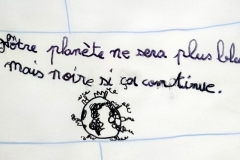 Nôtre planète ne sera plus bleu
mais noire si ça continue.